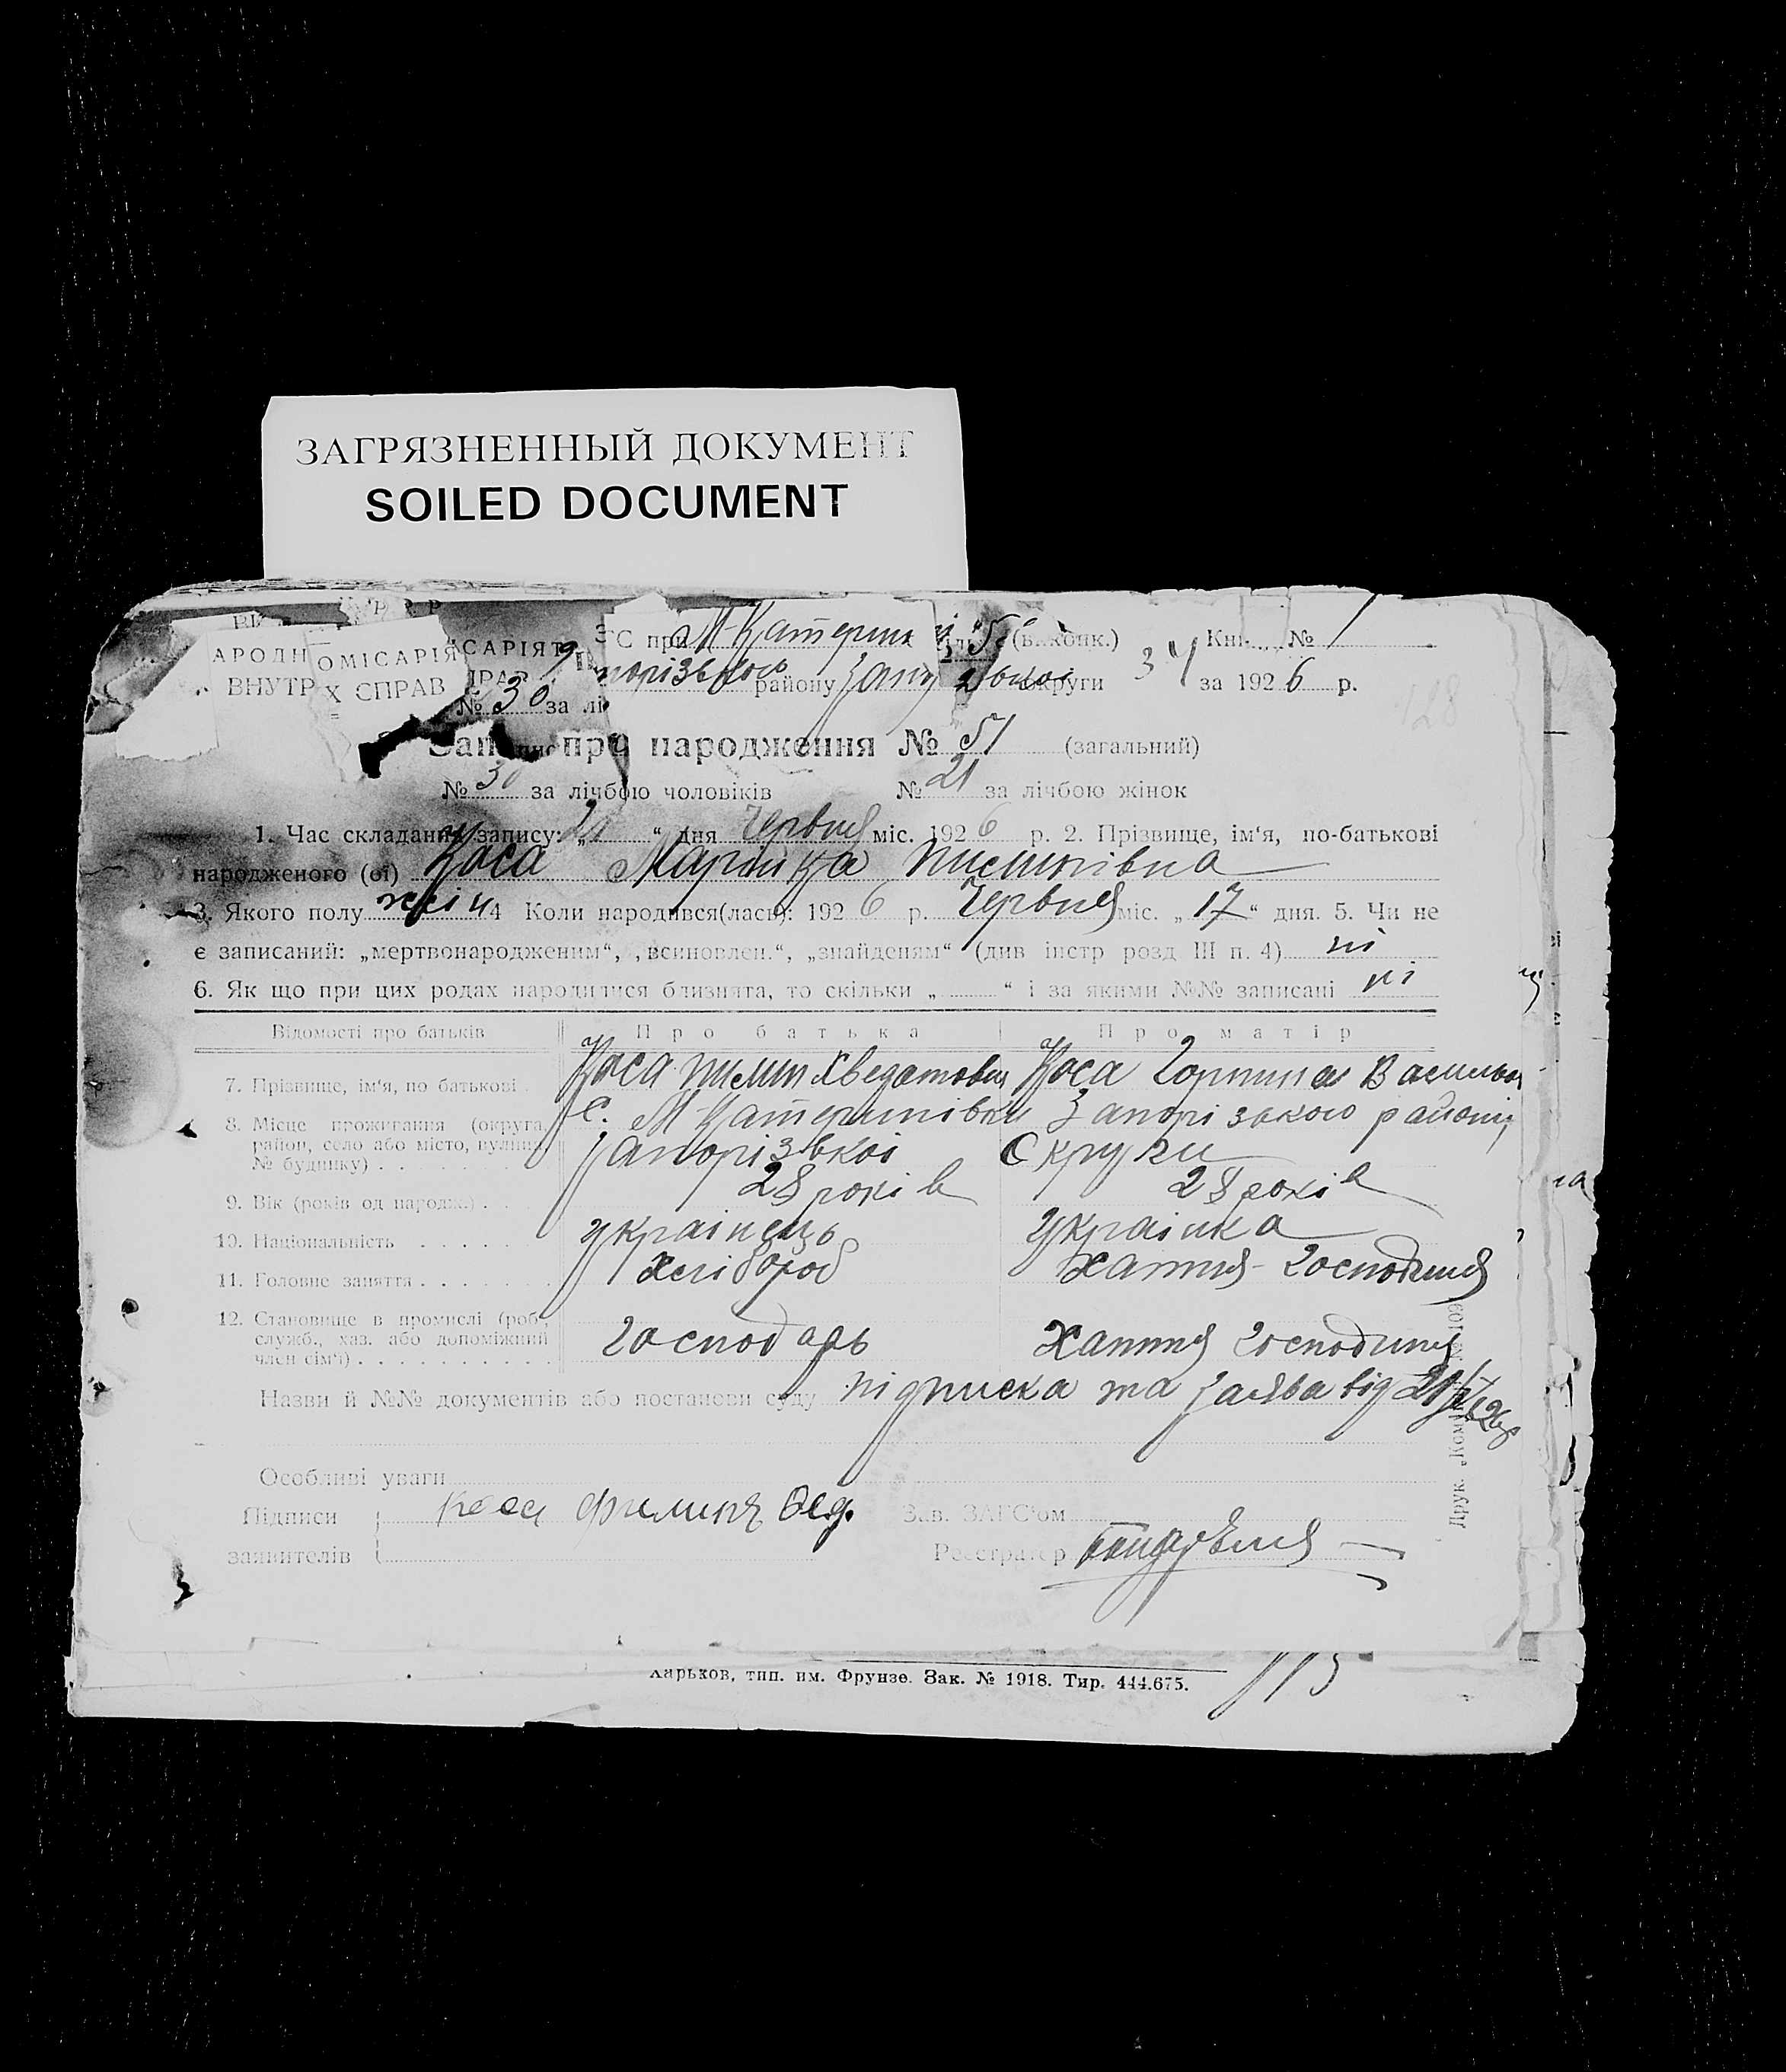 ЗАГРЯЗНЕННЫЙ ДОКУМЕНТ
SOILED DOCUMENT
АРОДН ОМІСАРІЯ САРІЯТ ЗС при М-Катерин (виконк.) Кни № 1
ВНУТР Х СПРАВ району округи за 1926 р.
№ 30 за лі
про народження № 51 (загальний)
№ 30 за лічбою чоловіків № 21 за лічбою жінок
1. Час складання запису: „21“ дня Червня міс. 1926 р. 2. Прізвище, ім‘я, по-батькові
народженого (ої) Коса Марійка Пилипівна
3. Якого полу жін 4 Коли народився(лась): 1926 р. Червня міс. „17“ дня. 5. Чи не
є записаний: „мертвонародженим“, „всиновлен.“, „знайденям“ (див інстр розд III п. 4) ні
6. Як що при цих родах народилися близнята, то скільки „ “ і за якими №№ записані ні
Відомості про батьків Про батька Про матір
7. Прізвище, ім‘я, по батькові Коса Пилип Хведотович Коса Горпина
8. Місце прожитання (округа, район, село або місто, вулиця, № будинку) с. М Катеринівки Запорізького району
Запорізької Округи
9. Вік (років од народж.) 28 років 28 років
10. Національність українець українка
11. Головне заняття Хлібороб Хатня-господиня
12. Становище в промислі (роб., служб., хаз. або допоміжний член сім‘ї) господарь Хатня господиня
Назви й №№ документів або постанови суду підписка та заява від
Особливі уваги
Підписи Коса Филипъ Фед. Зав. ЗАГС‘ом
заявителів Реєстратор
Харьков, тип. им. Фрунзе. Зак. № 1918. Тир. 444.675.